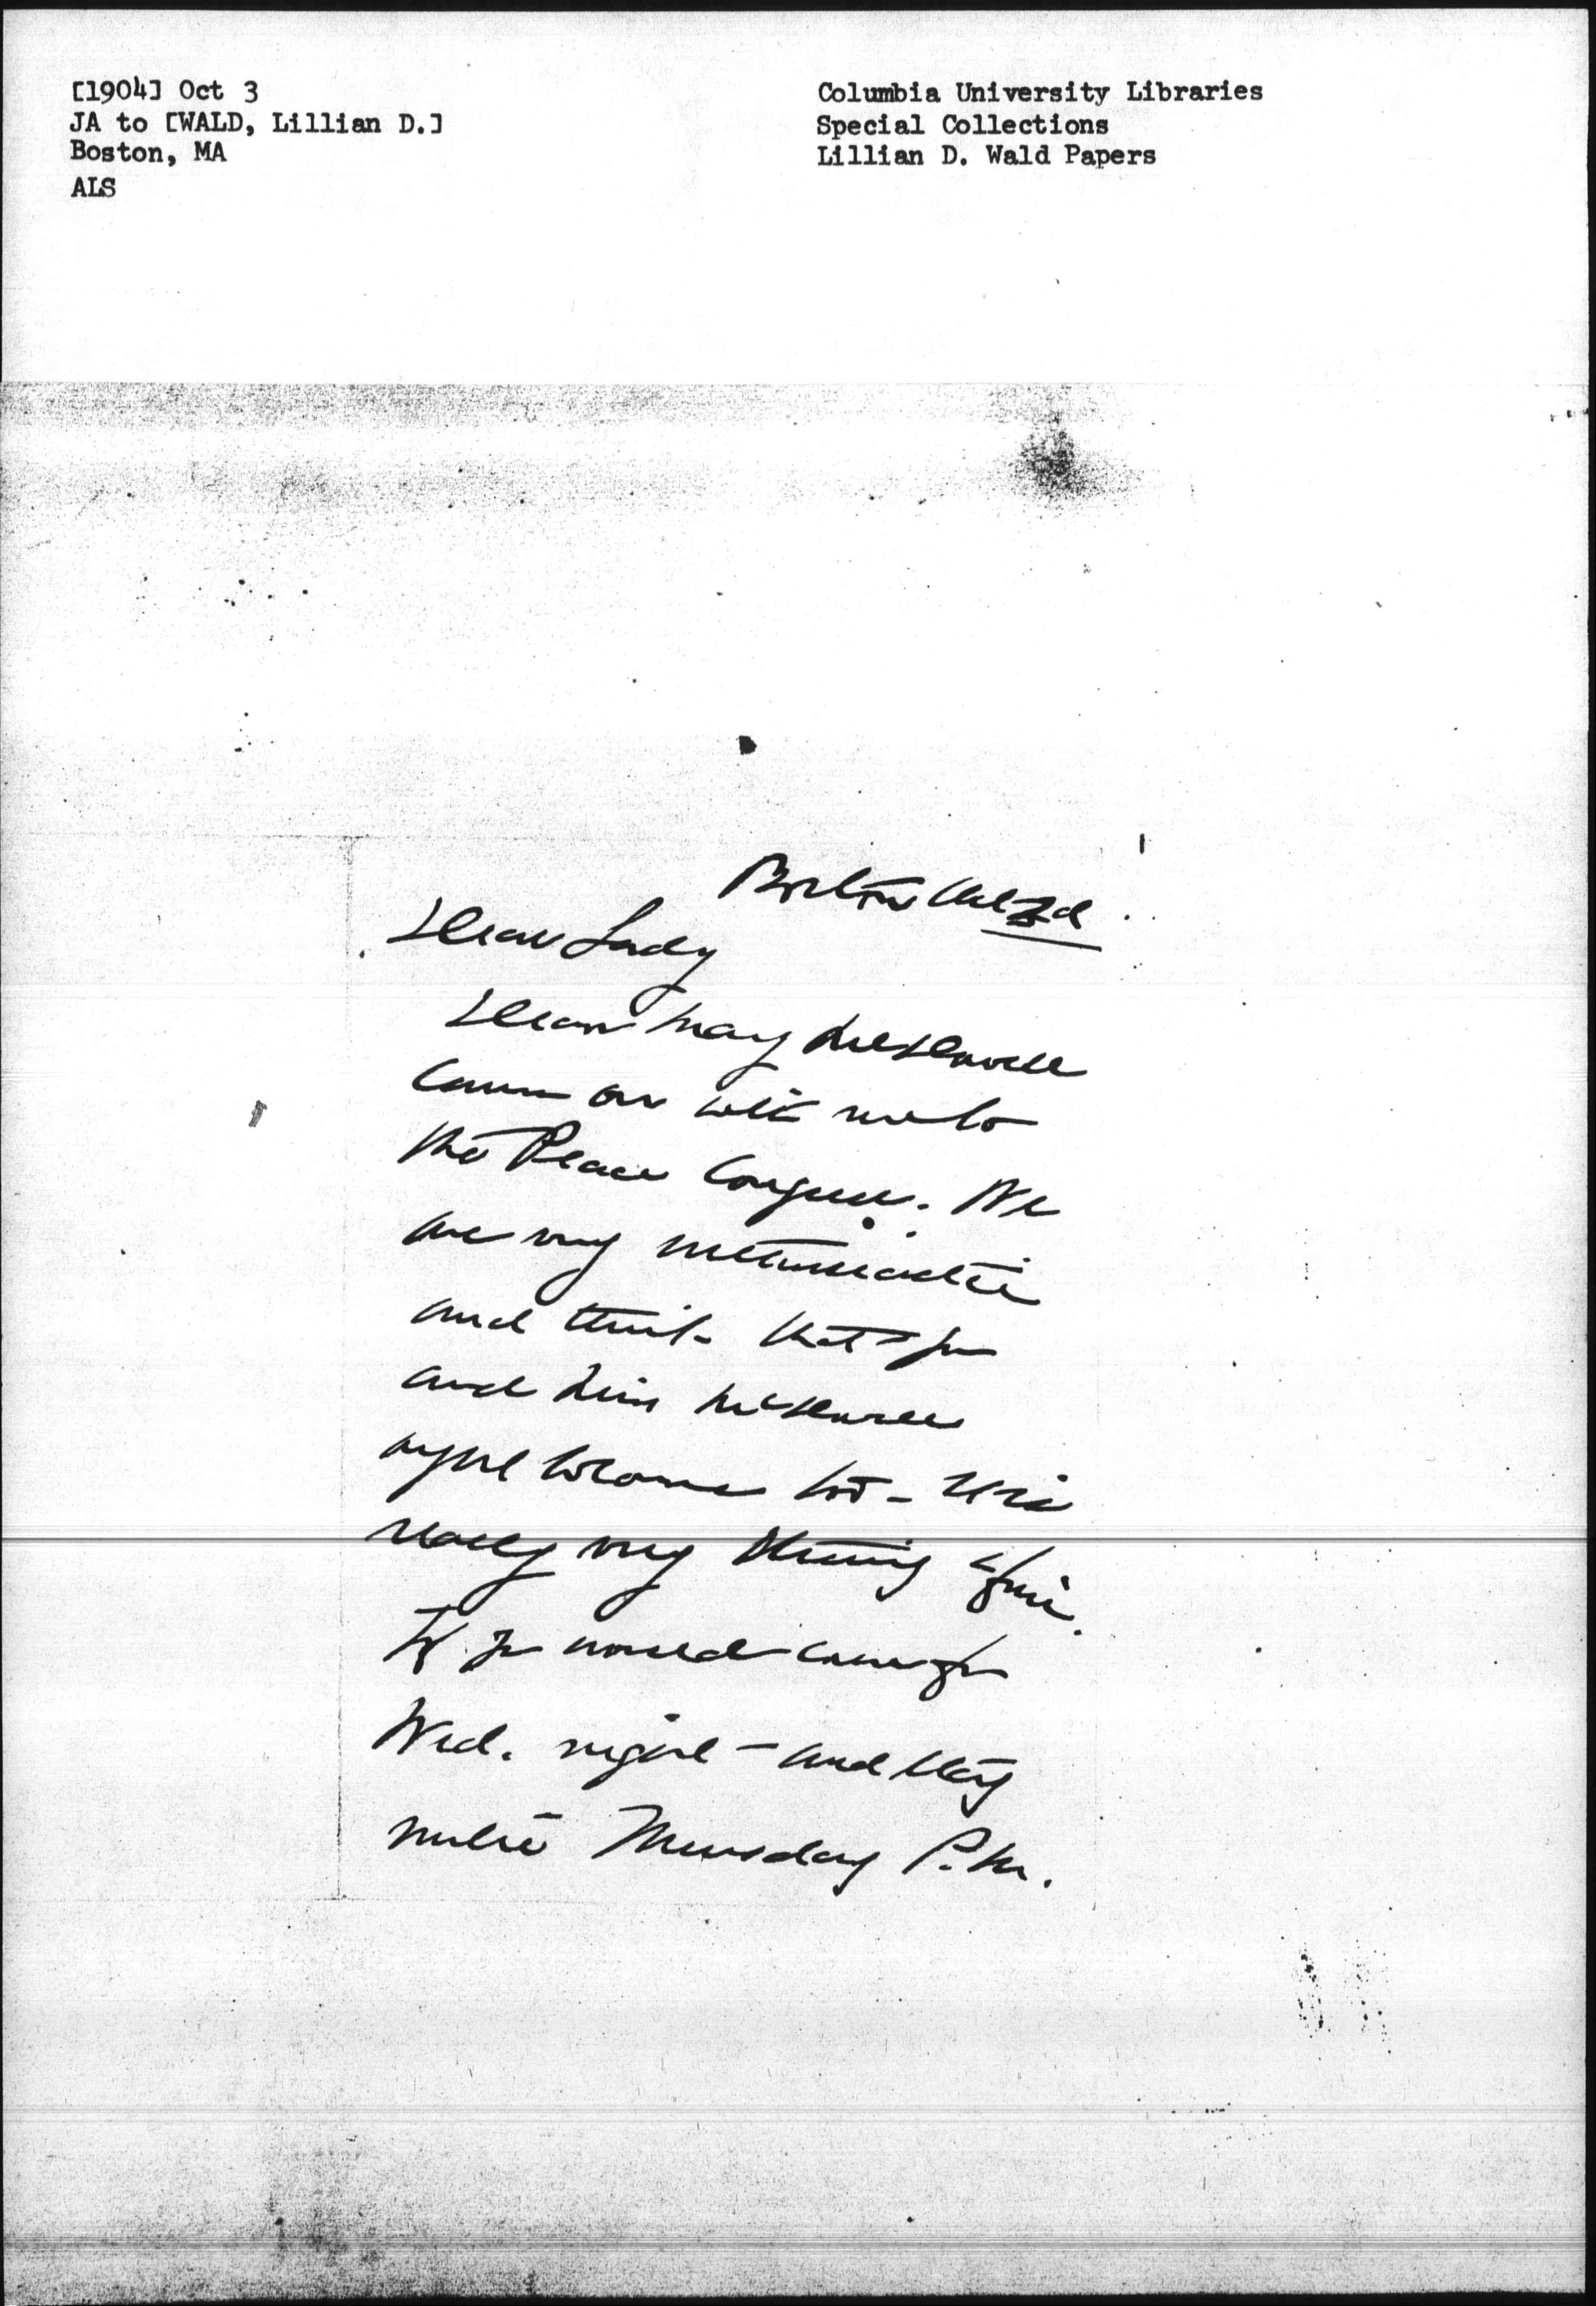 [1904] Oct 3
JA to [WALD, Lillian D.]
Boston, MA
ALS
Columbia University Libraries
Special Collections
Lillian D. Wald Papers
Boston Oct 3d
Dear Lady
Dear Mary McDowell
came on with me to
the Peace Congress. We
are very enthusiastic
and think that you
and Miss McDowell
ought to come too - It is
really very thrilling & fine.
If you would come for
Wed. night - and stay
until Thursday P.M.